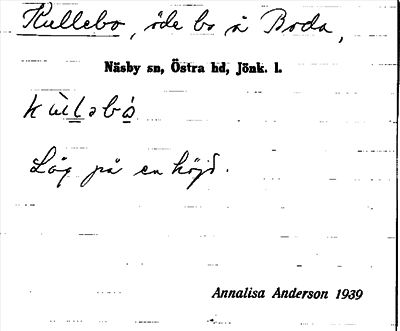 Kullebo, öde bo å Boda,
Näsby sn, Östra hd, Jönk. l.
kùl̲əbo̲
Låg på en höjd.
Annalisa Anderson 1939